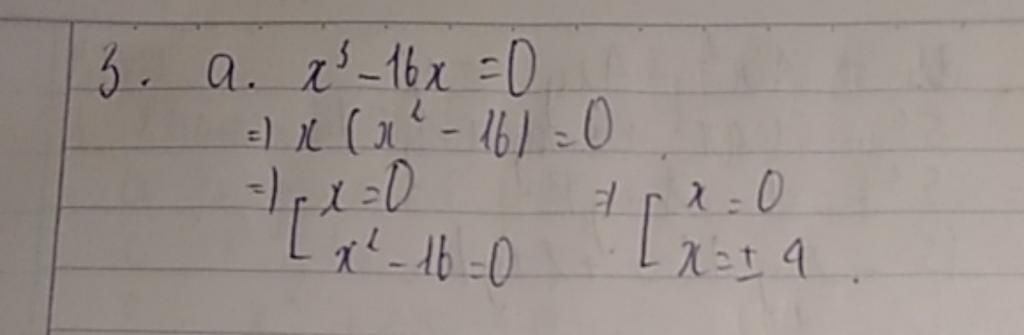 3. a. x³ - 16x = 0
=> x (x² - 16) = 0
=> [ x = 0 => [ x = 0
x² - 16 = 0 x = ± 4.